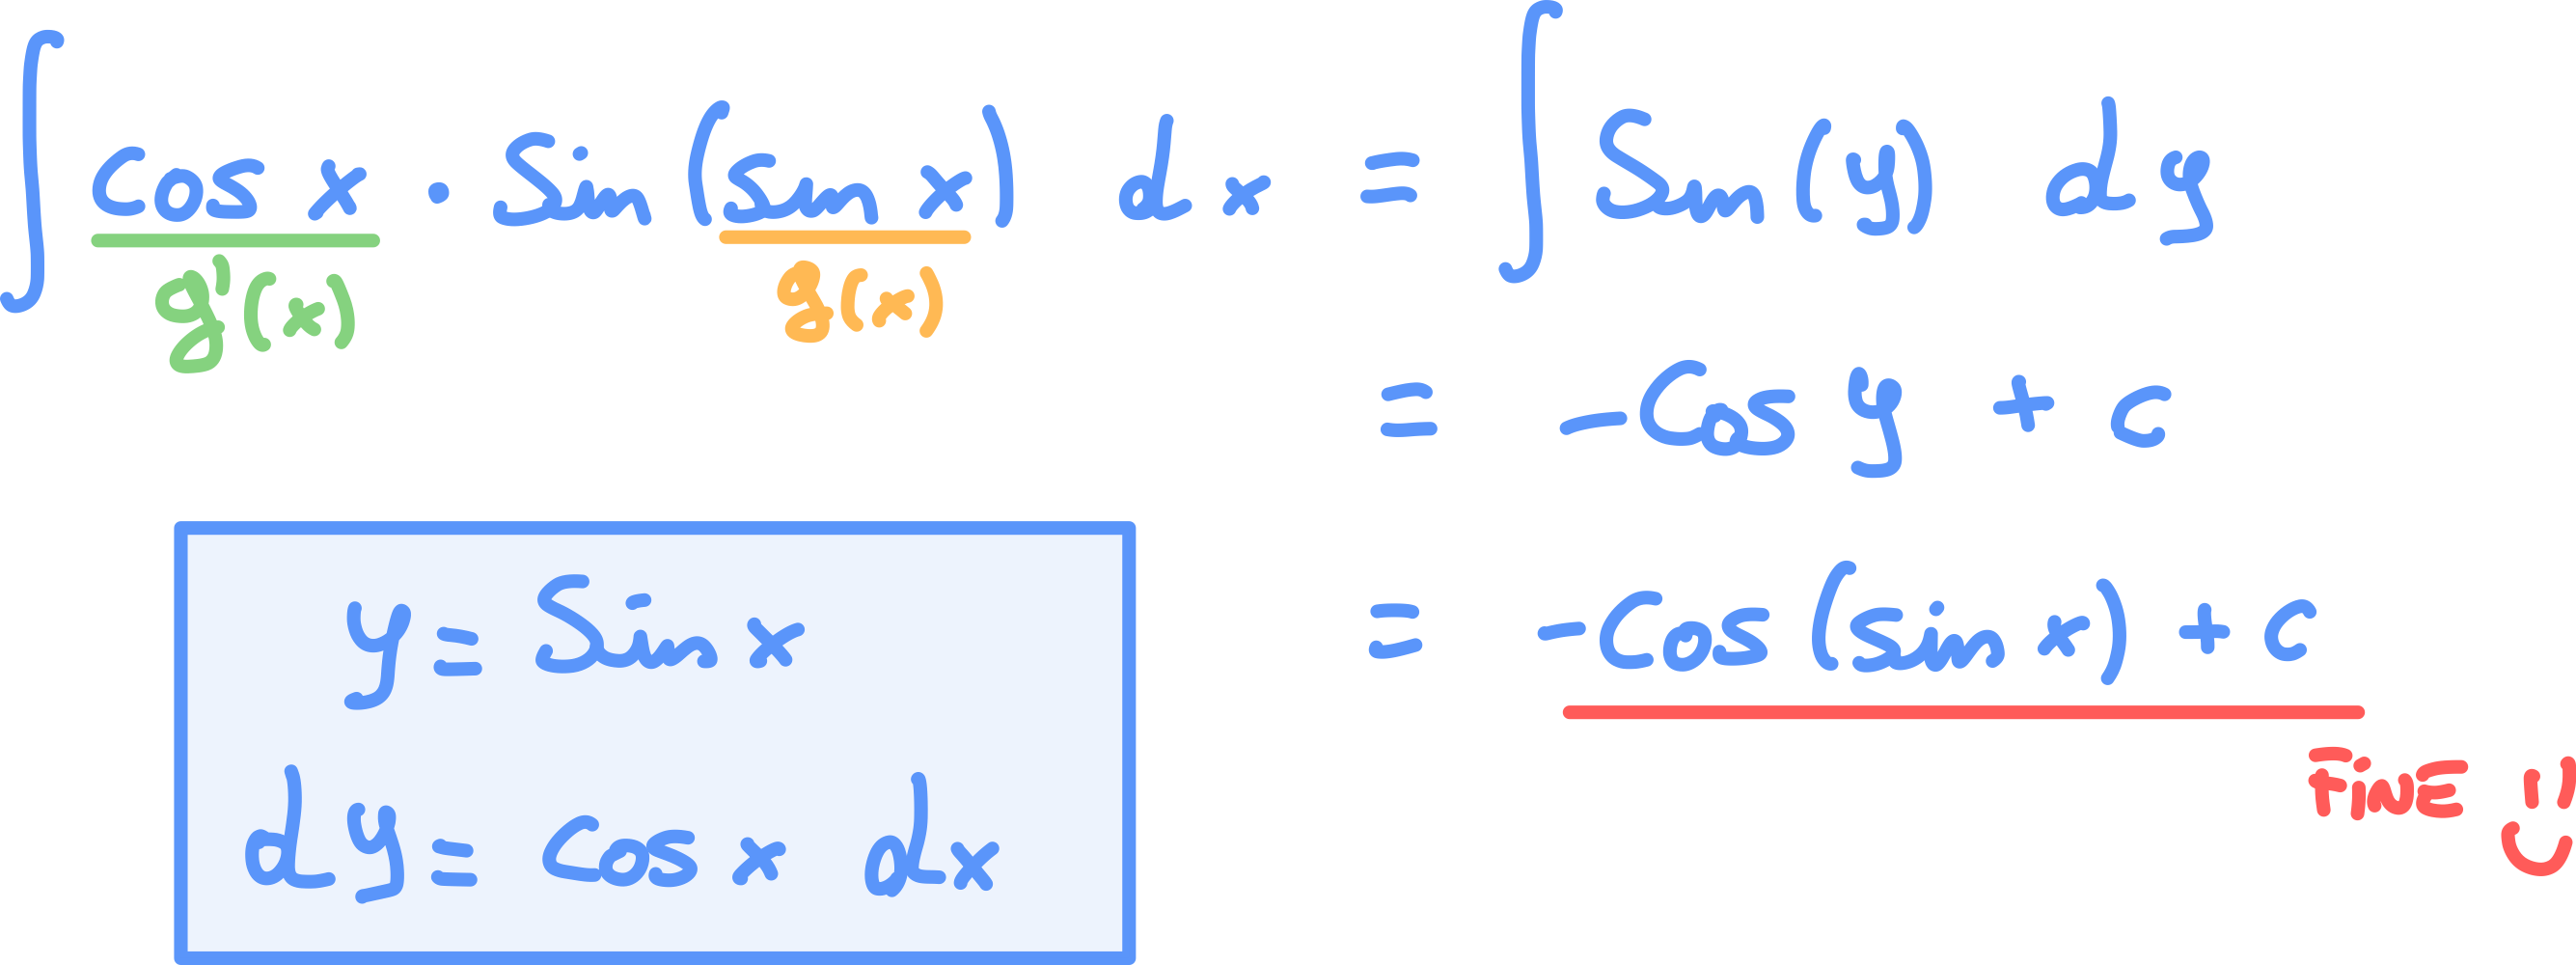 ∫ cos x · sin (sin x) dx = ∫ sin (y) dy
g'(x) g(x)
= -cos y + c
= -cos (sin x) + c
FINE
y = sin x
dy = cos x dx